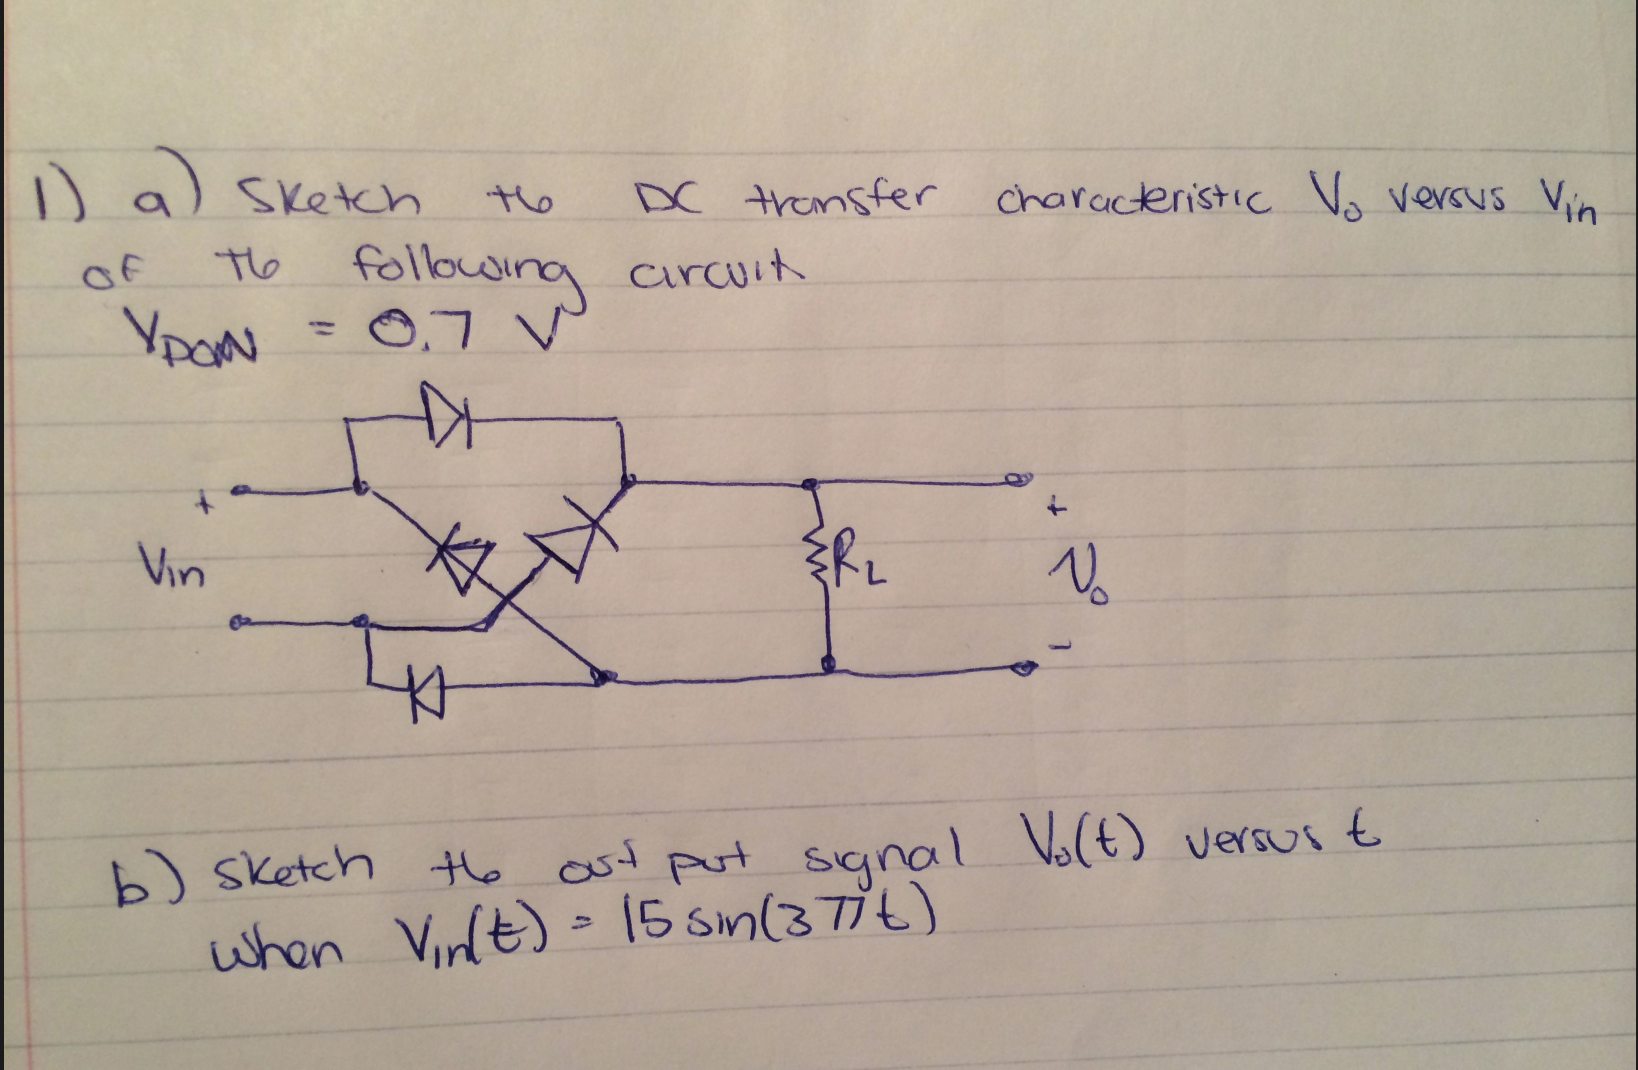 1) a) Sketch the DC transfer characteristic Vo versus Vin
of the following circuit
VDON = 0.7 V
+
Vin
RL
+
Vo
-
b) Sketch the out put signal Vo(t) versus t
when Vin(t) = 15 sin(377t)